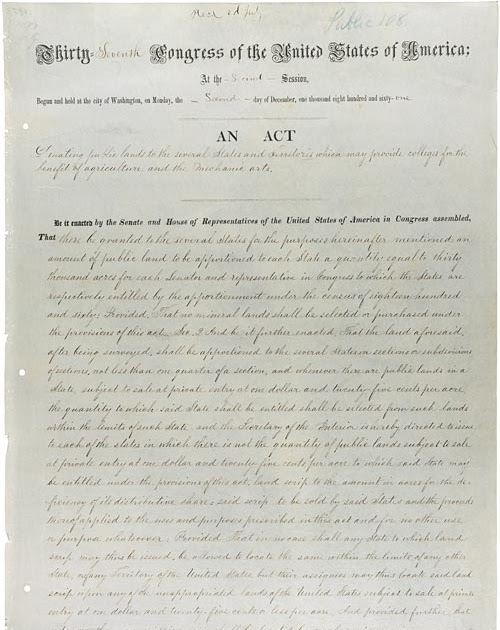 Public 108
Thirty-Seventh Congress of the United States of America;
At the Second Session,
Begun and held at the city of Washington, on Monday, the Second day of December, one thousand eight hundred and sixty-one
AN ACT
Donating public lands to the several States and Territories which may provide colleges for the
benefit of agriculture and the Mechanic arts.
Be it enacted by the Senate and House of Representatives of the United States of America in Congress assembled,
That there be granted to the several States for the purposes hereinafter mentioned an
amount of public land to be apportioned to each State a quantity equal to thirty
thousand acres for each Senator and representative in Congress to which the States are
respectively entitled by the apportionment under the census of eighteen hundred
and sixty; Provided, That no mineral lands shall be selected or purchased under
the provisions of this act. Sec. 2 And be it further enacted, That the land aforesaid,
after being surveyed, shall be apportioned to the several States in sections or subdivisions
of sections, not less than one quarter of a section, and whenever there are public lands in a
State, subject to sale at private entry at one dollar and twenty-five cents per acre,
the quantity to which said State shall be entitled shall be selected from such lands
within the limits of such State and the Secretary of the Interior is hereby directed to issue
to each of the states in which there is not the quantity of public lands subject to sale
at private entry at one dollar and twenty-five cents per acre to which said State may
be entitled under the provisions of this act, land scrip to the amount in acres for the de-
ficiency of its distributive share; said scrip to be sold by said States and the proceeds
thereof applied to the uses and purposes prescribed in this act and for no other use
or purpose whatsoever. Provided That in no case shall any State to which land
scrip may thus be issued, be allowed to locate the same within the limits of any other
State, or of any Territory of the United States but their assignees may thus locate said land
scrip upon any of the unappropriated lands of the United States subject to sale at private
entry at one dollar and twenty-five cents or less per acre. And provided further, that